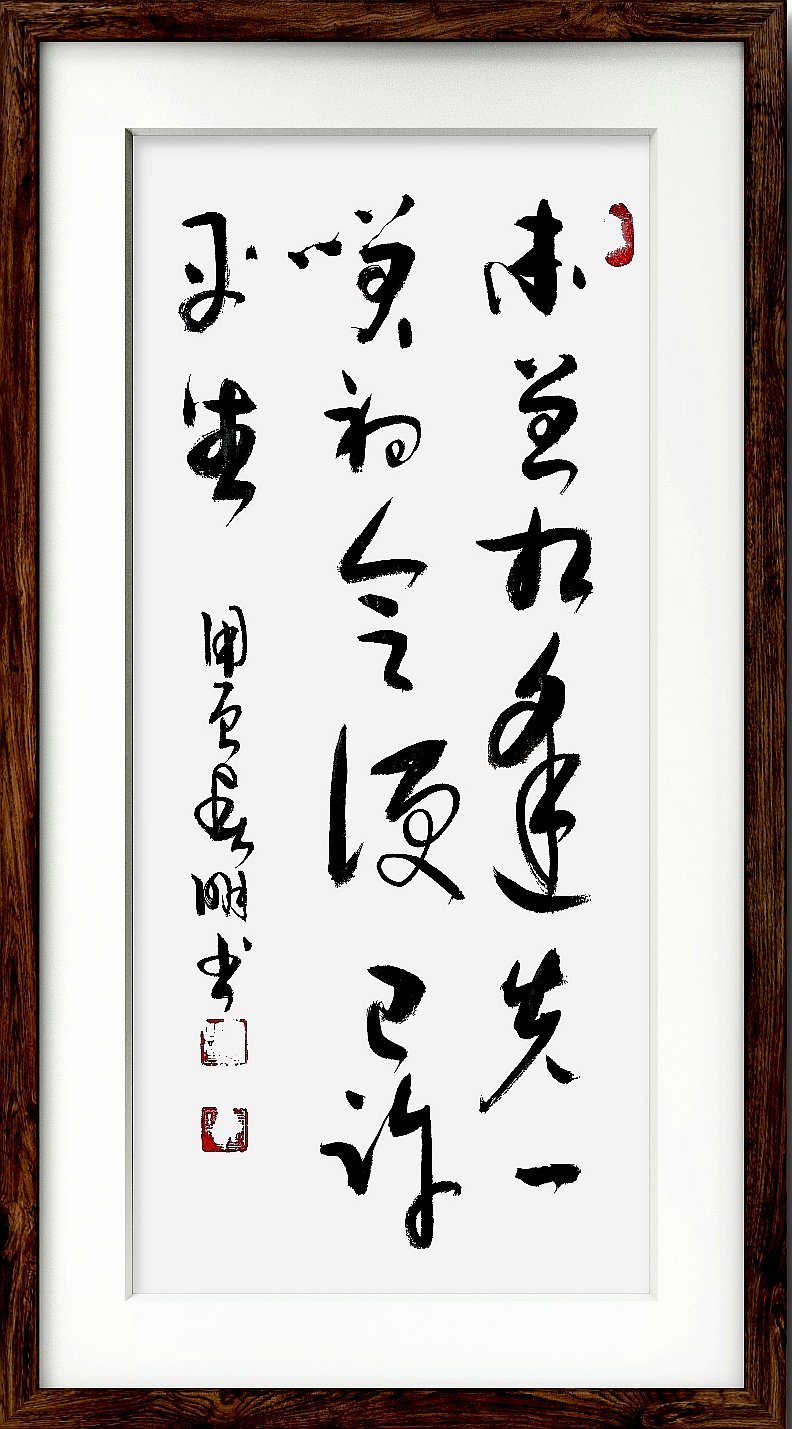 未曾相逢先一
笑初会便已许
平生
春明书